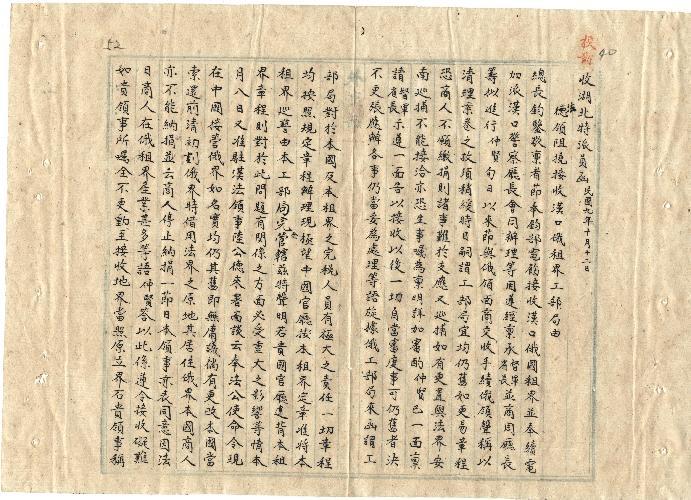 收湖北特派員函 民國九年十月十二日
德領阻撓接收漢口俄租界工部局由
總長鈞鑒敬稟者節奉鈞部電飭接收漢口俄國租界並奉續電
加派漢口警察廳長會同辦理等因遵經稟承督軍省長並商同廳長
籌擬進行仲賢旬日以來節與俄領面商交收手續俄領聲稱以
清理案卷之故須稍緩時日嗣謂工部局宜均仍舊如更易章程
恐商人不願繳捐則諸事難於支應又巡捕如有更置與法界安
南巡捕不能接洽亦恐生事囑為稟明詳加審酌仲賢已一面稟
請督軍省長示遵一面告以接收以後一切自當審度事可仍舊者決
不更張應辦各事仍當妥為處理等語旋據俄工部局來函謂工
部局對於本國及本租界之完稅人員有極大之責任一切章程
均按照規定章程辦理現極望中國官廳按本租界定章准將本
租界巡警由本工部局完管轄茲特聲明若貴國官廳違背本租
界章程則對於此問題有關係之方面必受重大之影響等情本
月八日又准駐漢法領事陸公德來署面談云奉法公使命令現
在中國接管俄界如名實均仍其舊即無庸議倘有更改本國當
索還前清初劃俄界時借用法界之原地其居住俄界本國商人
亦不能納捐並云商人停止納捐一節日本領事亦表同意因法
日商人在俄租界產業甚多等語仲賢答以此係遵令接收礙難
如貴領事所囑全不更動至接收地界當照原立界石貴領事稱
52
40